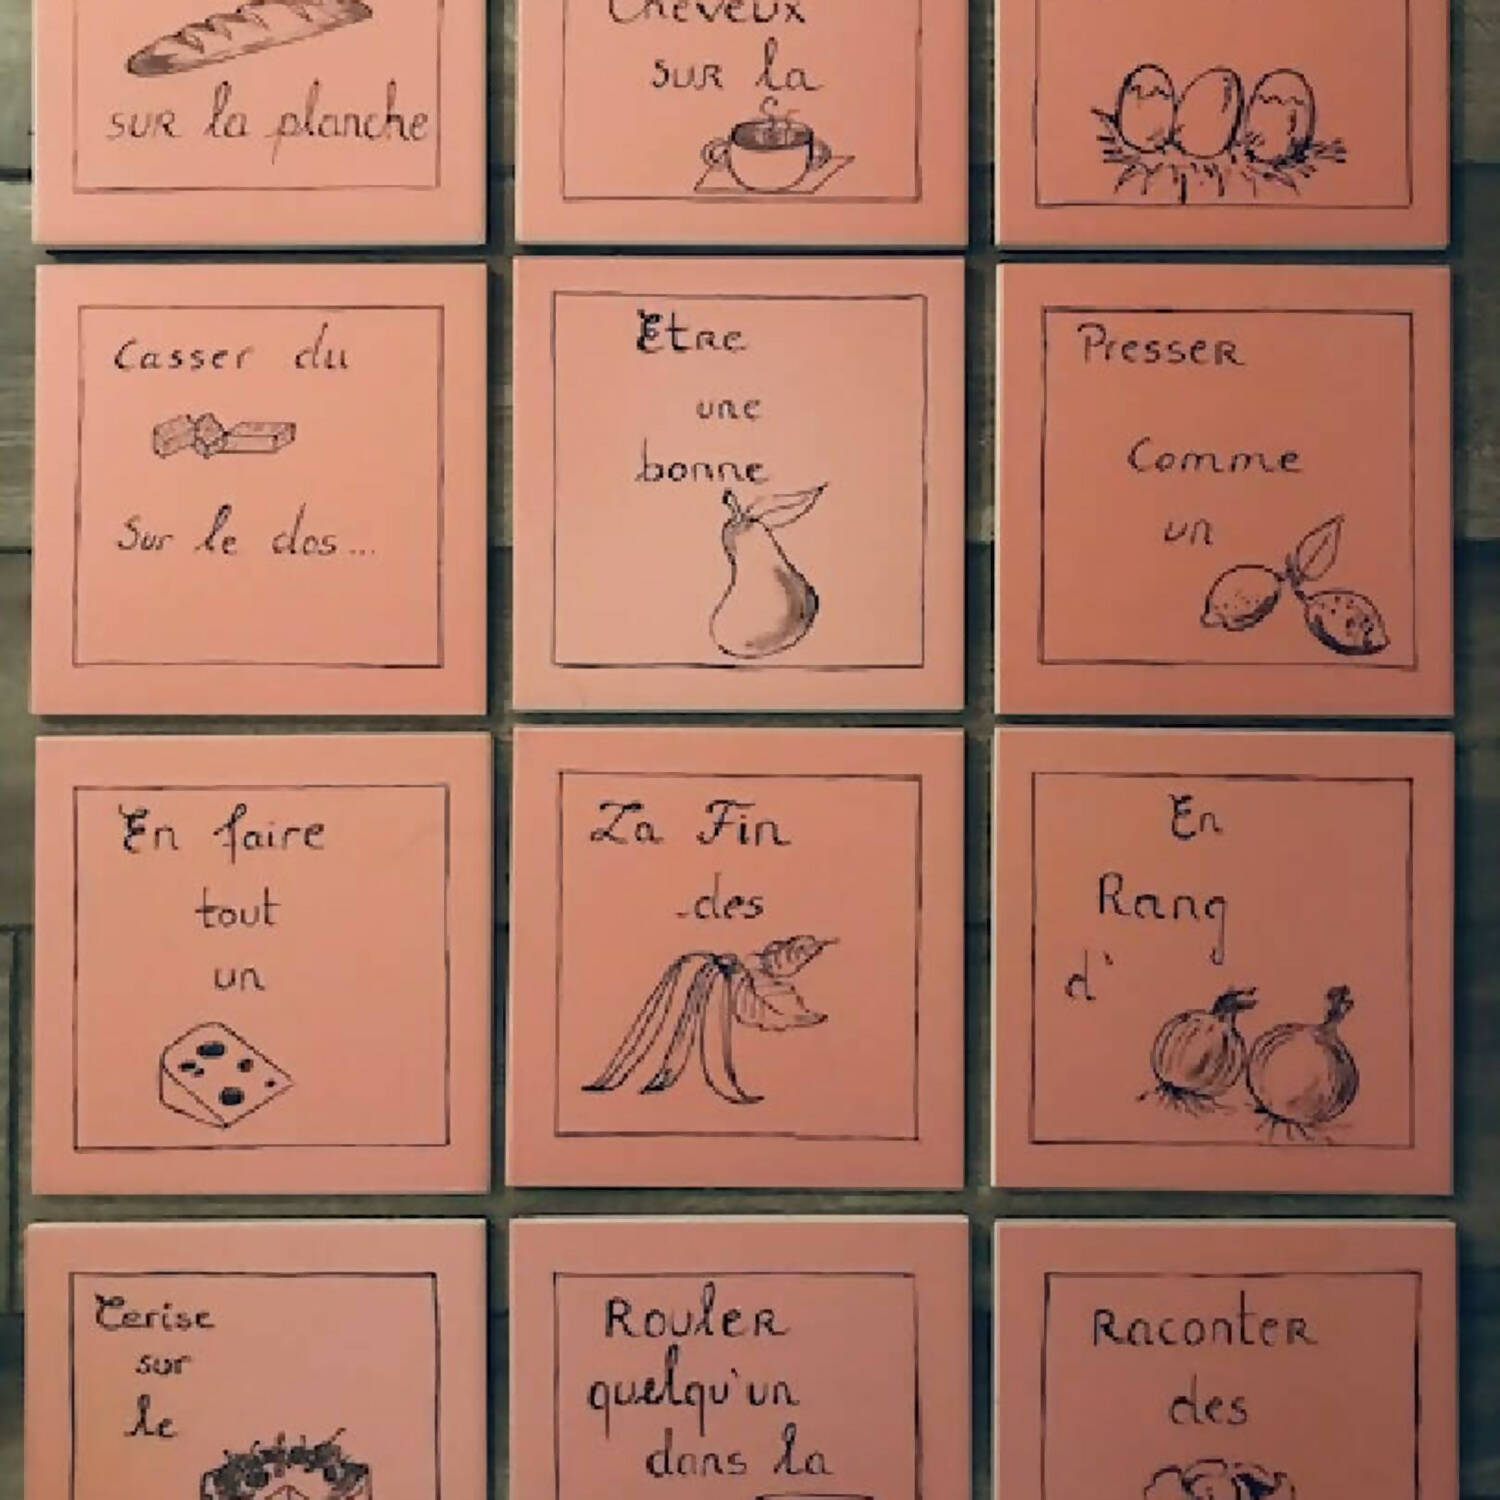 sur la planche
Cheveux
sur la
Casser du
Sur le dos...
Etre
une
bonne
Presser
Comme
un
En faire
tout
un
La Fin
des
En
Rang
d'
Cerise
sur
le
Rouler
quelqu'un
dans la
Raconter
des